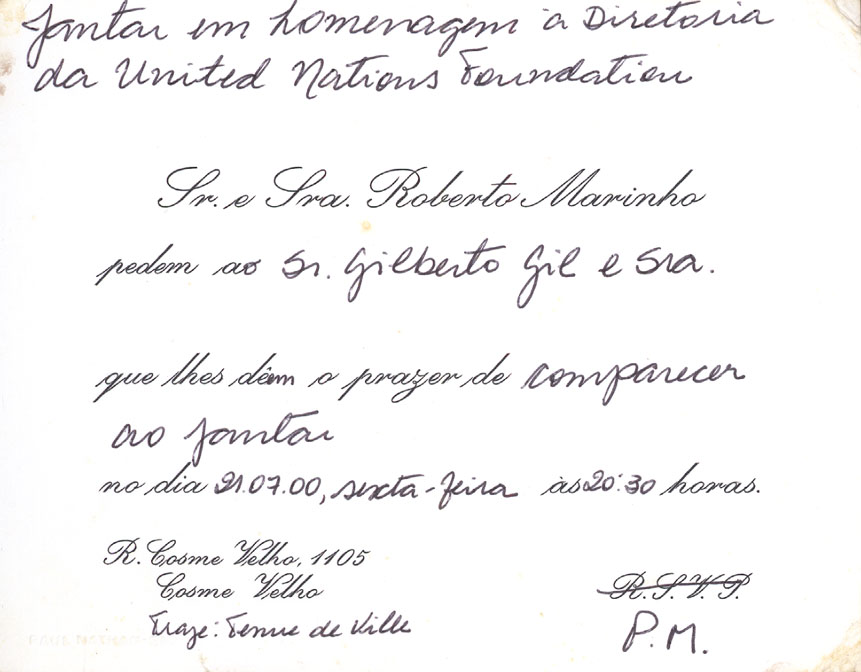 Jantar em homenagem à Diretoria
da United Nations Foundation
Sr. e Sra. Roberto Marinho
pedem ao Sr. Gilberto Gil e Sra.
que lhes dêem o prazer de comparecer
ao jantar
no dia 21.07.00, sexta-feira às 20:30 horas.
R. Cosme Velho, 1105
Cosme Velho
Traje: Tenue de Ville
R.S.V.P.
P.M.